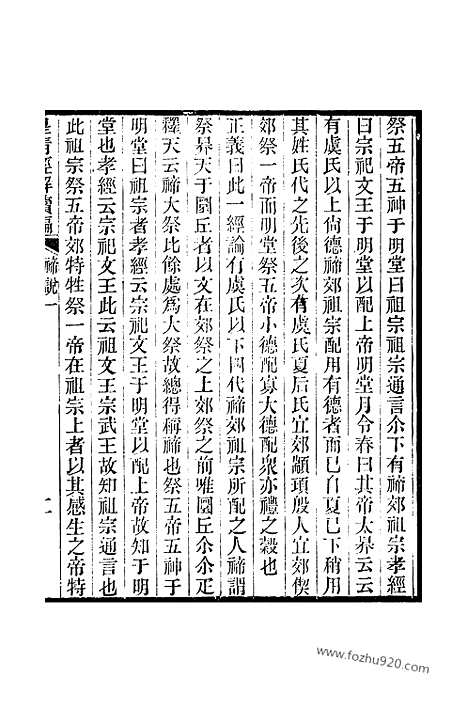 祭五帝五神于明堂曰祖宗祖宗通言尒下有禘郊祖宗孝經
曰宗祀文王于明堂以配上帝明堂月令春曰其帝太昦云云
有虞氏以上尙德禘郊祖宗配用有德者而已自夏已下稍用
其姓氏代之先後之次有虞氏夏后氏宜郊顓頊殷人宜郊偰
郊祭一帝而明堂祭五帝小德配寡大德配衆亦禮之殺也
正義曰此一經論有虞氏以下四代禘郊祖宗所配之人禘謂
祭昦天于圜丘者以文在郊祭之上郊祭之前唯圜丘尒尒疋
釋天云禘大祭比餘處爲大祭故總得稱禘也祭五帝五神于
明堂曰祖宗者孝經云宗祀文王于明堂以配上帝故知于明
堂也孝經云宗祀文王此云祖文王宗武王故知祖宗通言也
此祖宗祭五帝郊特牲祭一帝在祖宗上者以其感生之帝特
皇清經解續編
禘說一
二
www.fozhu920.com